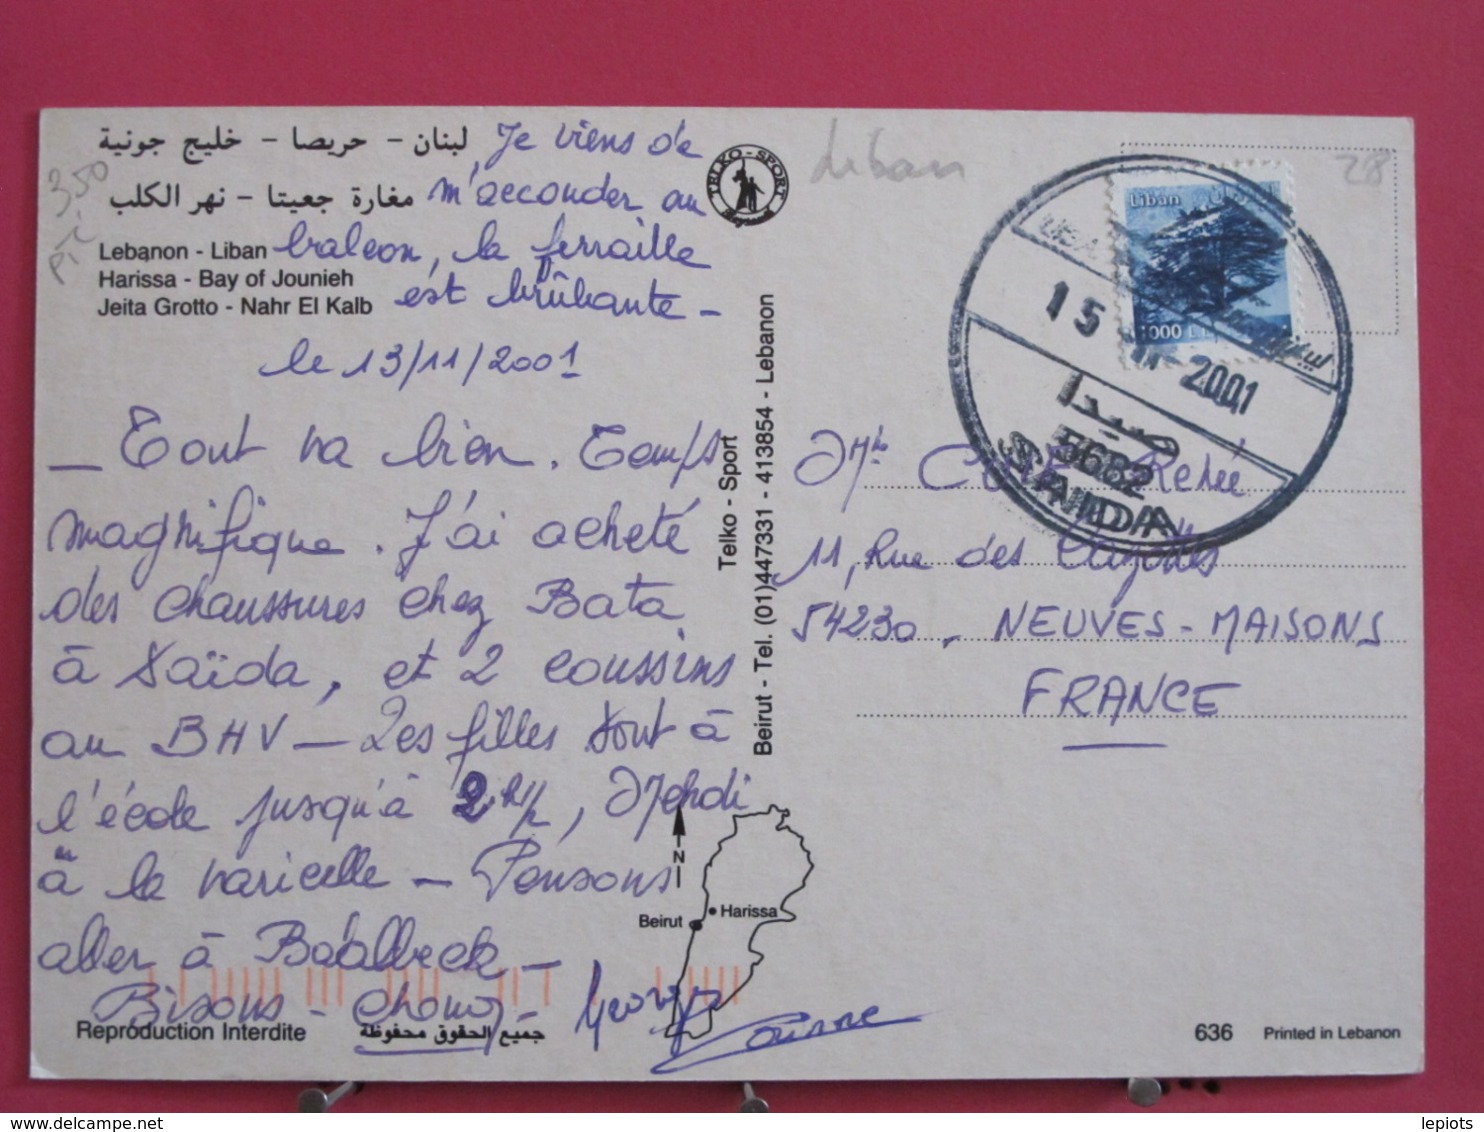 لبنان - حريصا - خليج جونية
مغارة جعيتا - نهر الكلب
Lebanon - Liban
Harissa - Bay of Jounieh
Jeita Grotto - Nahr El Kalb
3.50
Je viens de
m'accouder au
balcon, la ferraille
est brûlante -
le 13/11/2001
- Tout va bien. Temps
magnifique. J'ai acheté
des chaussures chez Bata
à Saïda, et 2 coussins
au BHV - Les filles sont à
l'école jusqu'à 2h1/2, Mehdi
à la varicelle - Pensons
aller à Baalbeck -
Bisous -
Corinne
Reproduction Interdite
جميع الحقوق محفوظة
TELKO - SPORT
Telko - Sport
Beirut - Tel. (01)447331 - 413854 - Lebanon
N
Beirut
Harissa
Liban
28
Liban
1000 L
15 2001
صيدا
5682
SAIDA
René
11, Rue des
54230, NEUVES-MAISONS
FRANCE
636
Printed in Lebanon
lepiots